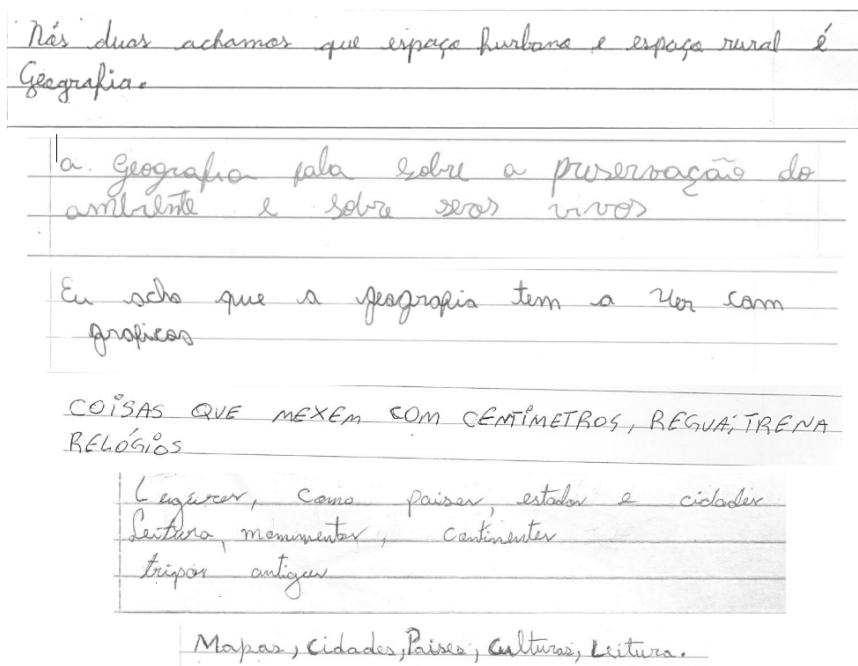 Nós duas achamos que espaço hurbano e espaço rural é
Geografia.
a. Geografia fala sobre a preservação do
ambiente e sobre seros vivos
Eu acho que a geografia tem a ver com
graficos
COISAS QUE MEXEM COM CENTÍMETROS, REGUA, TRENA
RELÓGIOS
Lugures, como paises, estados e cidades
Leitura, monumentos, continentes
tripos antigus
Mapas, cidades, Paises, culturas, Leitura.